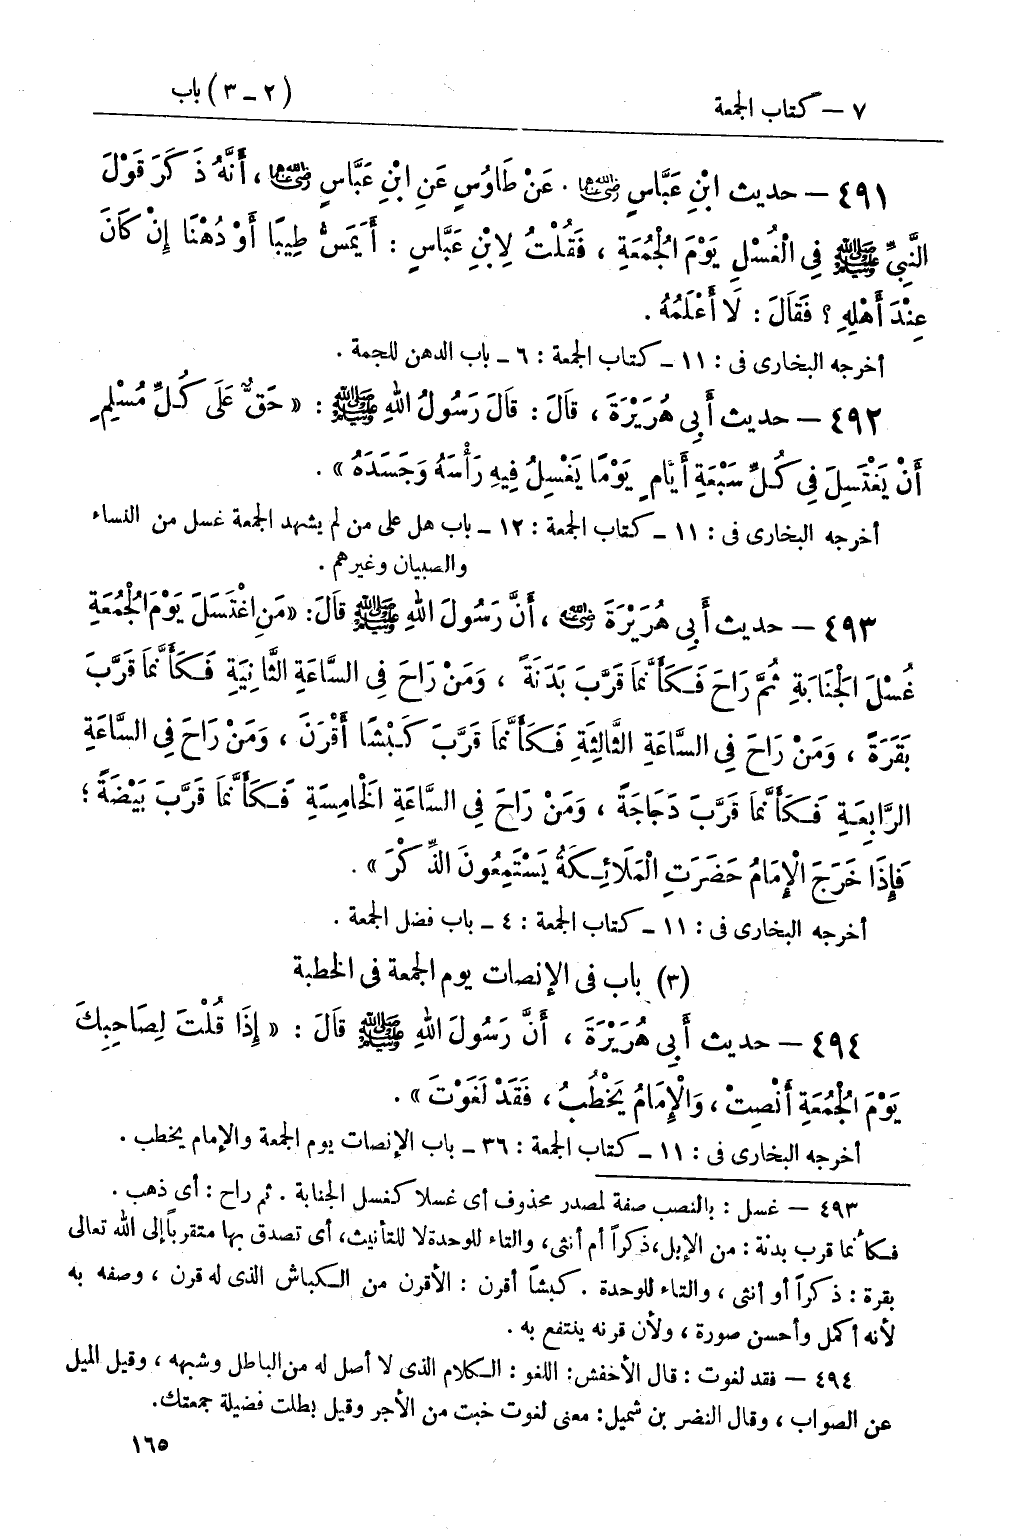 ٧ – كتاب الجمعة (٢ – ٣) باب
٤٩١ – حديث ابْنِ عَبَّاسٍ رضي الله عنهما . عَنْ طَاوُسٍ عَنِ ابْنِ عَبَّاسٍ رضي الله عنهما ، أَنَّهُ ذَكَرَ قَوْلَ
النَّبِيِّ ﷺ فِي الْغُسْلِ يَوْمَ الْجُمُعَةِ ، فَقُلْتُ لِابْنِ عَبَّاسٍ : أَيَمَسُّ طِيبًا أَوْ دُهْنًا إِنْ كَانَ
عِنْدَ أَهْلِهِ ؟ فَقَالَ : لَا أَعْلَمُهُ .
أخرجه البخارى فى : ١١ – كتاب الجمعة : ٦ – باب الدهن للجمة .
٤٩٢ – حديث أَبِي هُرَيْرَةَ ، قَالَ : قَالَ رَسُولُ اللهِ ﷺ : « حَقٌّ عَلَى كُلِّ مُسْلِمٍ
أَنْ يَغْتَسِلَ فِي كُلِّ سَبْعَةِ أَيَّامٍ يَوْمًا يَغْسِلُ فِيهِ رَأْسَهُ وَجَسَدَهُ » .
أخرجه البخارى فى : ١١ – كتاب الجمعة : ١٢ – باب هل على من لم يشهد الجمعة غسل من النساء
والصبيان وغيرهم .
٤٩٣ – حديث أَبِي هُرَيْرَةَ رضي الله عنه ، أَنَّ رَسُولَ اللهِ ﷺ قَالَ : « مَنِ اغْتَسَلَ يَوْمَ الْجُمُعَةِ
غُسْلَ الْجَنَابَةِ ثُمَّ رَاحَ فَكَأَنَّمَا قَرَّبَ بَدَنَةً ، وَمَنْ رَاحَ فِي السَّاعَةِ الثَّانِيَةِ فَكَأَنَّمَا قَرَّبَ
بَقَرَةً ، وَمَنْ رَاحَ فِي السَّاعَةِ الثَّالِثَةِ فَكَأَنَّمَا قَرَّبَ كَبْشًا أَقْرَنَ ، وَمَنْ رَاحَ فِي السَّاعَةِ
الرَّابِعَةِ فَكَأَنَّمَا قَرَّبَ دَجَاجَةً ، وَمَنْ رَاحَ فِي السَّاعَةِ الْخَامِسَةِ فَكَأَنَّمَا قَرَّبَ بَيْضَةً ؛
فَإِذَا خَرَجَ الْإِمَامُ حَضَرَتِ الْمَلَائِكَةُ يَسْتَمِعُونَ الذِّكْرَ » .
أخرجه البخارى فى : ١١ – كتاب الجمعة : ٤ – باب فضل الجمعة .
(٣) باب فى الإنصات يوم الجمعة فى الخطبة
٤٩٤ – حديث أَبِي هُرَيْرَةَ ، أَنَّ رَسُولَ اللهِ ﷺ قَالَ : « إِذَا قُلْتَ لِصَاحِبِكَ
يَوْمَ الْجُمُعَةِ أَنْصِتْ ، وَالْإِمَامُ يَخْطُبُ ، فَقَدْ لَغَوْتَ » .
أخرجه البخارى فى : ١١ – كتاب الجمعة : ٣٦ – باب الإنصات يوم الجمعة والإمام يخطب .
٤٩٣ – غسل : بالنصب صفة لمصدر محذوف أى غسلا كغسل الجنابة . ثم راح : أى ذهب .
فكأنما قرب بدنة : من الإبل،ذكراً أم أنثى، والتاء للوحدةلا للتأنيث، أى تصدق بها متقرباًإلى الله تعالى
بقرة : ذكراً أو أنثى ، والتاء للوحدة . كبشاً أقرن : الأقرن من الكباش الذى له قرن ، وصفه به
لأنه أكمل وأحسن صورة ، ولأن قرنه ينتفع به .
٤٩٤ – فقد لغوت : قال الأخفش: اللغو : الكلام الذى لا أصل له من الباطل وشبهه ، وقيل الميل
عن الصواب ، وقال النضر بن شميل: معنى لغوت خبت من الأجر وقيل بطلت فضيلة جمعتك.
١٦٥